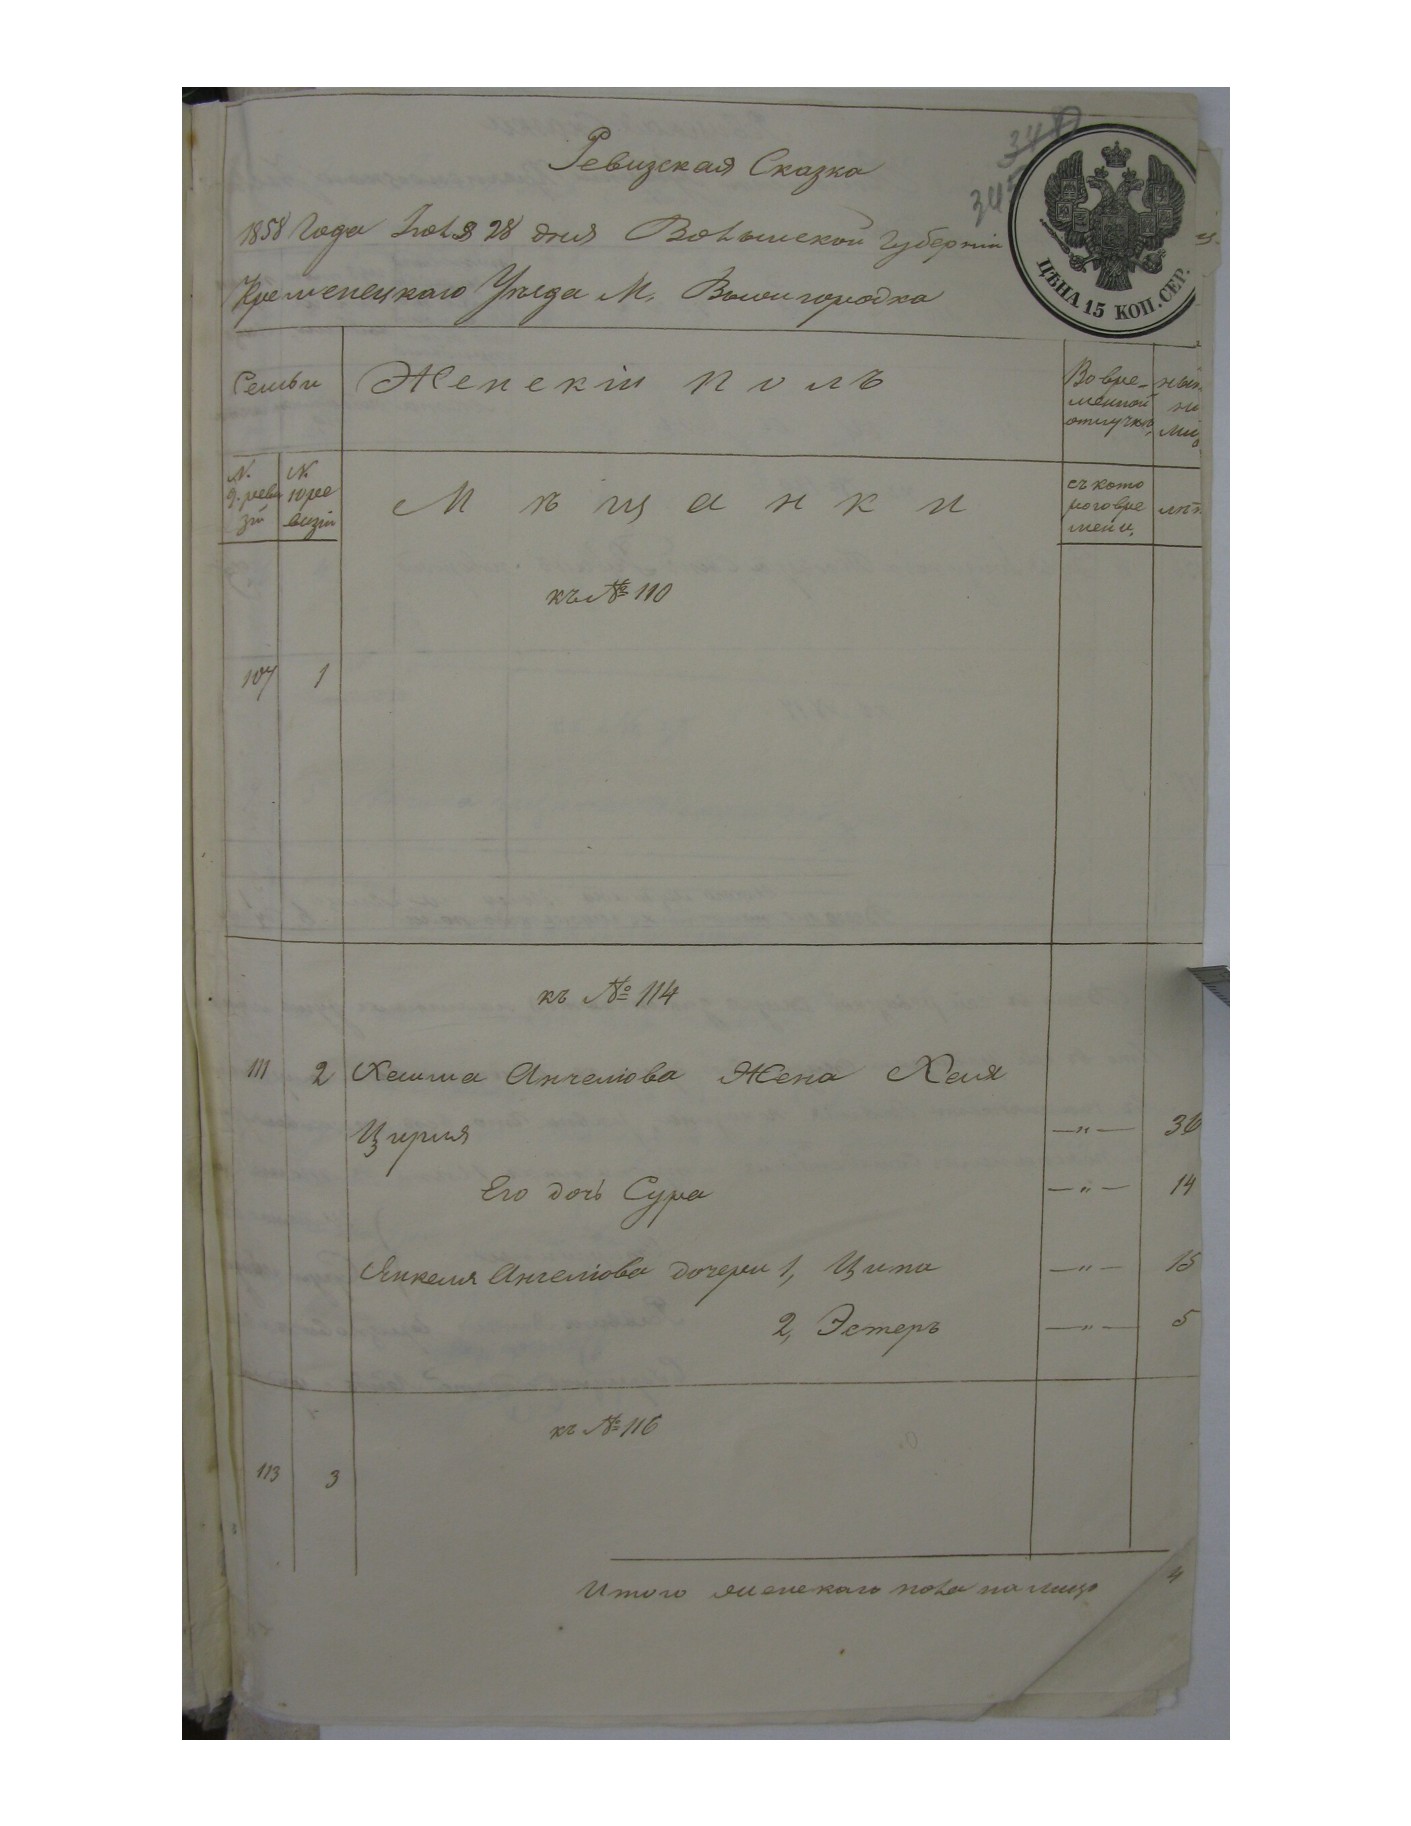 Ревизская Сказка
34
345
1858 Года Іюля 28 дня Волынской Губерніи
Кременецкаго Уѣзда М. Вышгородка
ЦѢНА 15 КОП. СЕР.
Семьи
Женскій полъ
Во вре-
менной
отлучкѣ,
нын
ни
ли
N.
9. реви
зіи
N.
10 ре
визіи
Мѣщанки
съ кото
раго вре
мени,
лѣт
къ № 110
107 1
къ № 114
111 2 Хаима Анчелiова Жена Хая
Цирля —"— 36
Его дочь Сура —"— 14
Янкеля Анчелiова дочери 1, Ципа —"— 15
2, Эстеръ —"— 5
къ № 116
113 3
Итого женскаго пола на лицо 4